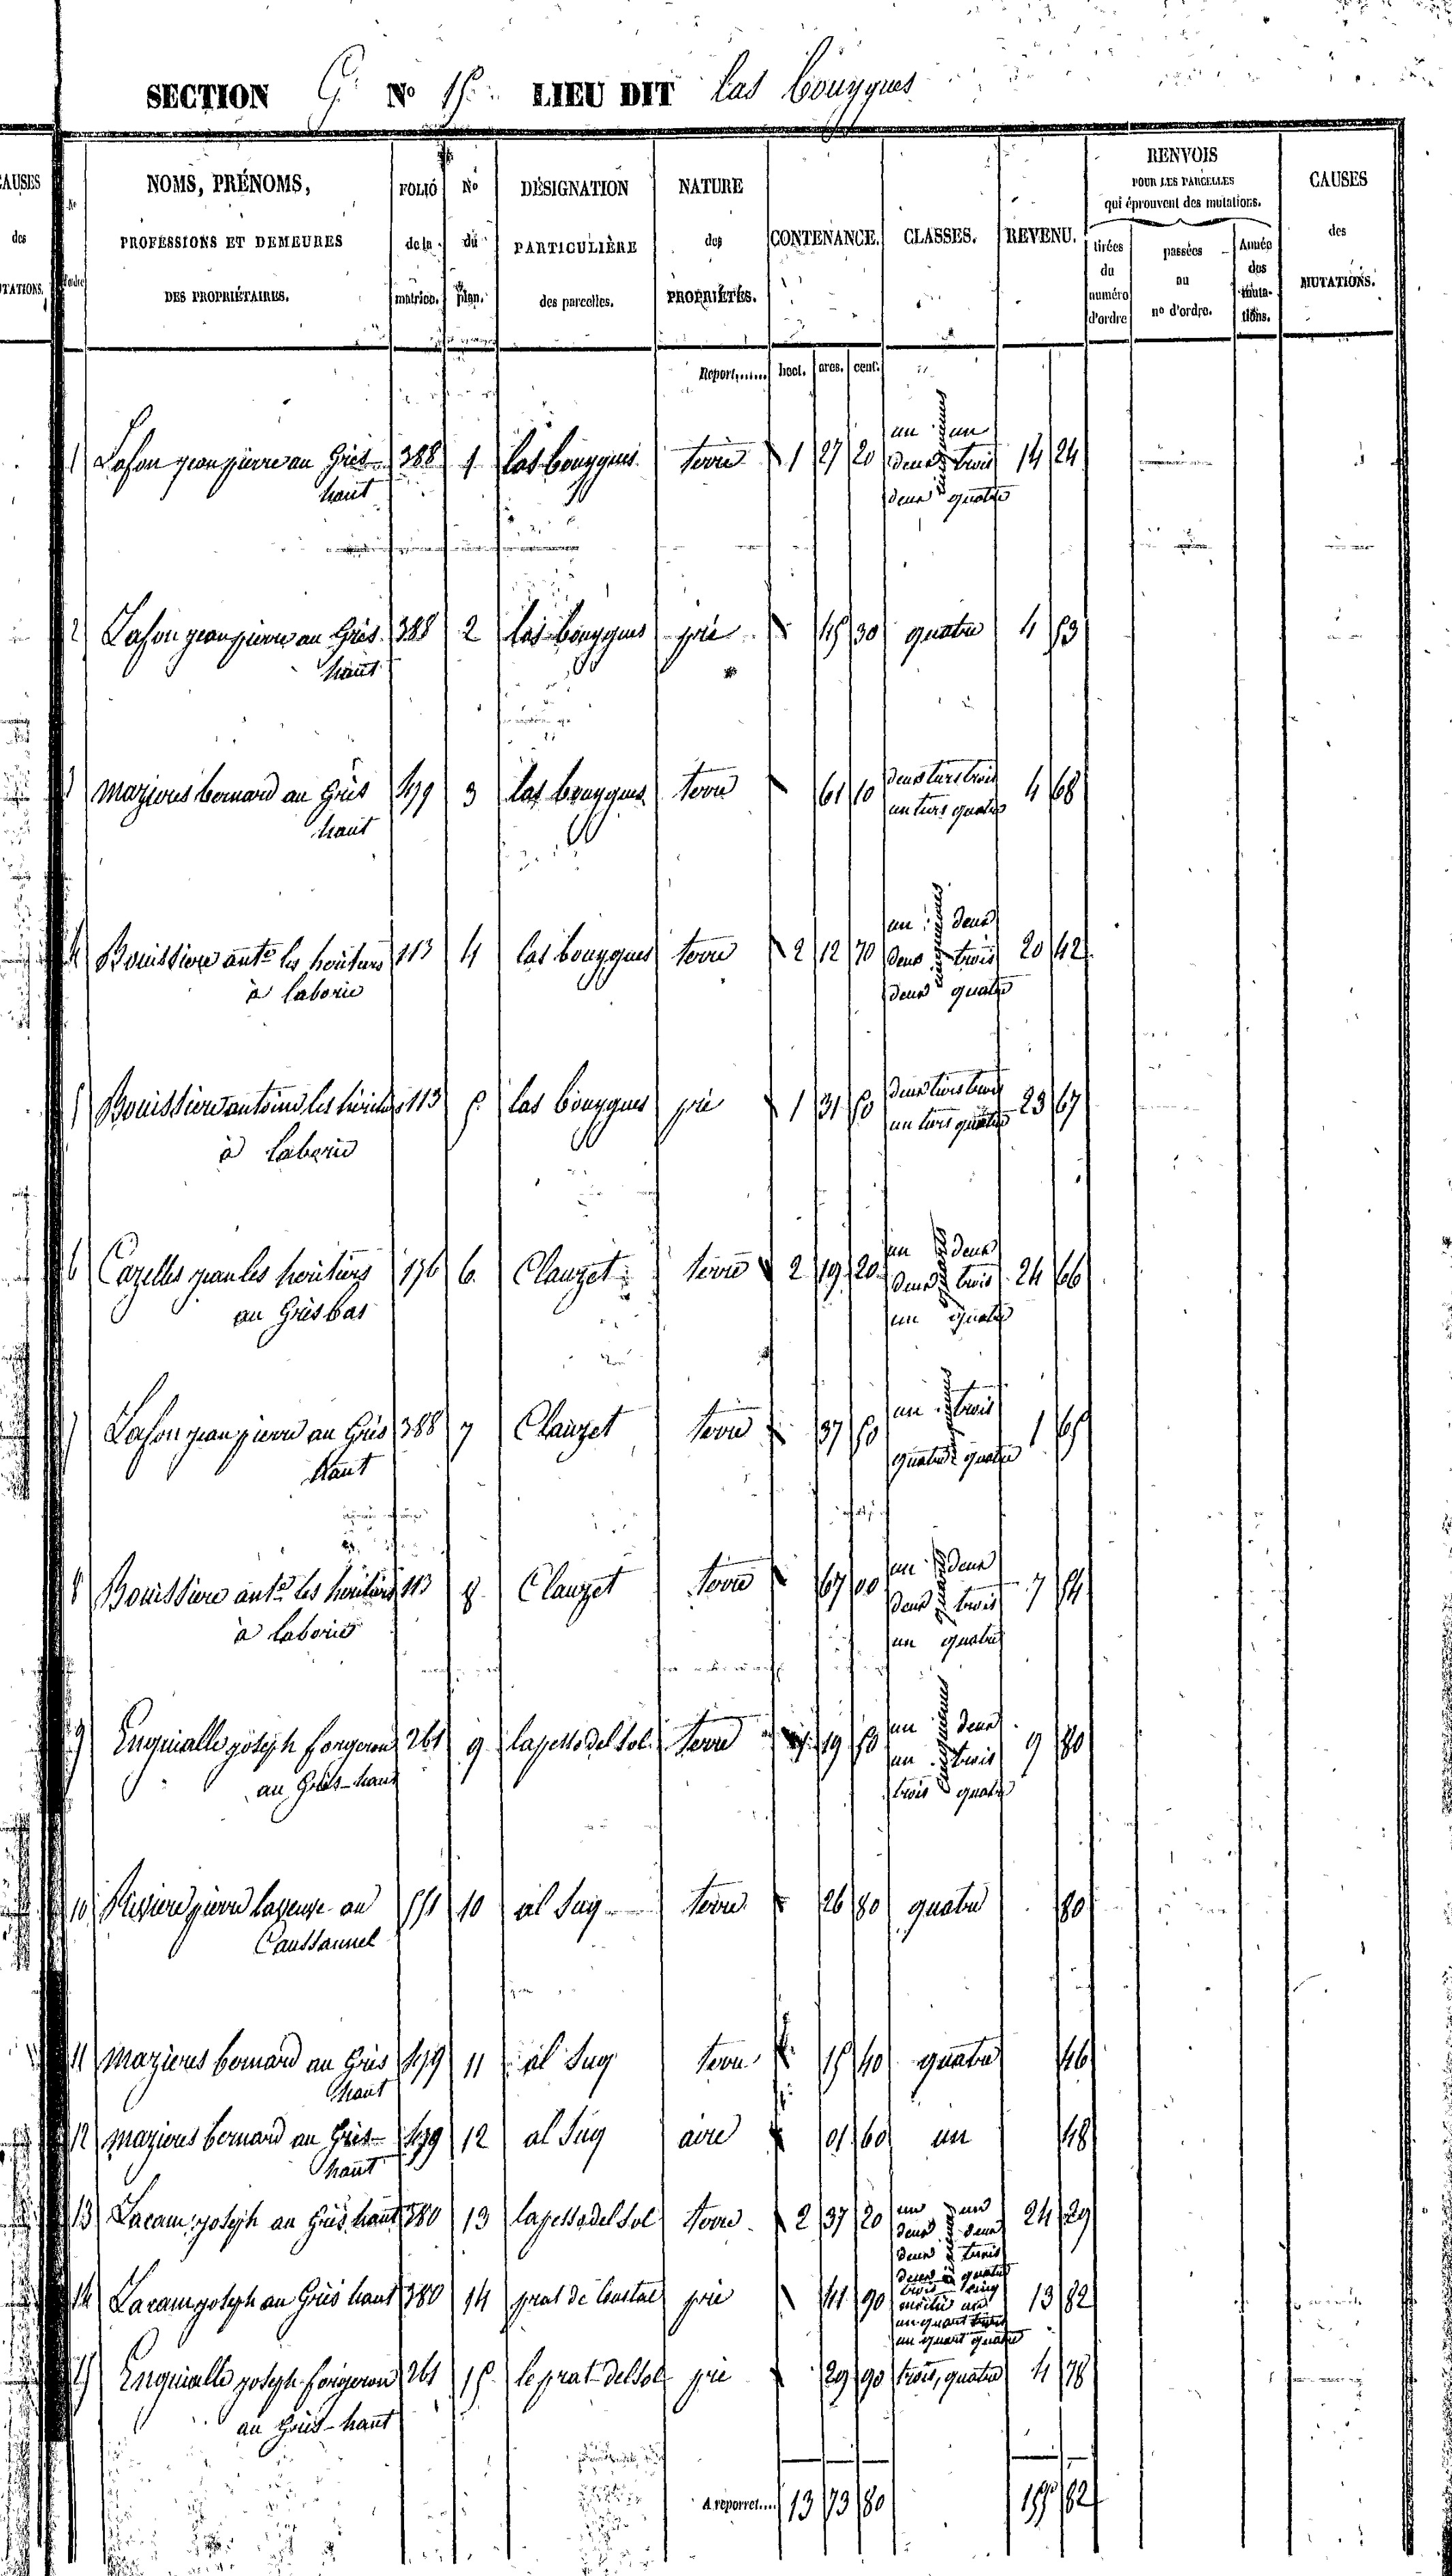 SECTION G No 15 LIEU DIT las bouygues
CAUSES
des
MUTATIONS.
No
d'ordre
NOMS, PRÉNOMS,
PROFESSIONS ET DEMEURES
DES PROPRIÉTAIRES.
FOLIO
de la
matrice.
No
du
Plan.
DÉSIGNATION
PARTICULIÈRE
des parcelles.
NATURE
des
PROPRIÉTÉS.
CONTENANCE.
CLASSES.
REVENU.
RENVOIS
POUR LES PARCELLES
qui éprouvent des mutations.
tirées
du
numéro
d'ordre
passées
au
no d'ordre.
Année
des
muta-
tions.
CAUSES
des
MUTATIONS.
Report...... hect. ares. cent.
un un
1 Lafon jean pierre au Grès 388 1 las bouygues terre 1 27 20 deux cinquièmes trois 14 24
haut deux quatre
2 Lafon jean pierre au Grès 388 2 las bouygues pré 45 30 quatre 4 53
haut
deux tiers trois
3 mazieres bernard au Grès 479 3 las bouygues terre 61 10 4 68
haut un tiers quatre
un deux
4 Bouissiere ante les héritiers 113 4 las bouygues terre 2 12 70 deux cinquièmes trois 20 42
à laborie deux quatre
deux tiers trois
5 Bouissiere antoine les héritiers 113 5 las bouygues pré 1 31 50 23 67
à Laborie un tiers quatre
un deux
6 Cazelles jean les héritiers 176 6 Clauzet terre 2 19 20 deux quarts trois 24 66
au Grès bas un quatre
un trois
7 Lafon jean pierre au Grès 388 7 Clauzet terre 37 50 cinquièmes 1 65
haut quatre quatre
un deux
8 Bouissiere ante les héritiers 113 8 Clauzet terre 67 00 deux quarts trois 7 54
à laborie un quatre
un deux
9 Enguialle joseph forgeron 261 9 lapesso del sol terre 19 50 un cinquièmes trois 9 80
au Grès-haut trois quatre
10 Riviere pierre au 551 10 al Suq terre 26 80 quatre 80
Caussannel
11 mazieres bernard au Grès 479 11 al Suq terre 15 40 quatre 46
haut
12 mazieres bernard au Grès 479 12 al Suq aire 01 60 un 48
haut
un un
13 Lacam joseph au Grès haut 380 13 lapesso del sol terre 2 37 20 deux deux 24 29
deux trois
deux quatre
trois cinq
14 Lacam joseph au Grès haut 380 14 prat de pré 41 90 moitié un 13 82
un quart trois
un quart quatre
15 Enguialle joseph forgeron 261 15 le prat del sol pré 29 90 trois, quatre 4 78
au Grès-haut
A reporter.... 13 73 80 155 82